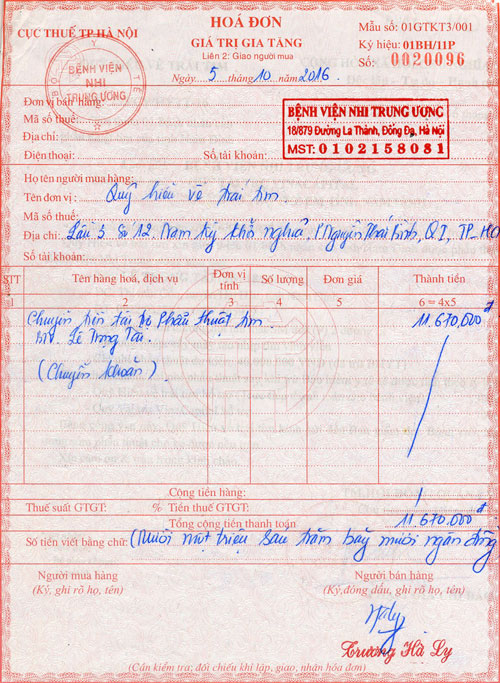 CỤC THUẾ TP HÀ NỘI
HOÁ ĐƠN
GIÁ TRỊ GIA TĂNG
Liên 2: Giao người mua
Ngày 5 tháng 10 năm 2016
Mẫu số: 01GTKT3/001
Ký hiệu: 01BH/11P
Số: 0020096
BỘ Y TẾ
BỆNH VIỆN
NHI
TRUNG ƯƠNG
Đơn vị bán hàng:
Mã số thuế:
Địa chỉ:
Điện thoại: Số tài khoản:
BỆNH VIỆN NHI TRUNG ƯƠNG
18/879 Đường La Thành, Đống Đa, Hà Nội
MST: 0102158081
Họ tên người mua hàng:
Tên đơn vị: Quỹ hiểu về trái tim.
Mã số thuế:
Địa chỉ: Lầu 3 Số 12 Nam Kỳ khởi nghĩa, P. Nguyễn Thái Bình, Q1, TP-HC
Số tài khoản:
STT Tên hàng hoá, dịch vụ Đơn vị tính Số lượng Đơn giá Thành tiền
1 2 3 4 5 6 = 4x5
Chuyển tiền tài trợ Phẫu thuật tim 11.670,000đ
BN. Lê Trọng Tài.
(Chuyển khoản)
Cộng tiền hàng:
Thuế suất GTGT: % Tiền thuế GTGT:
Tổng cộng tiền thanh toán 11.670.000đ
Số tiền viết bằng chữ: (Mười một triệu sáu trăm bảy mươi ngàn đồng
Người mua hàng Người bán hàng
(Ký, ghi rõ họ, tên) (Ký,đóng dấu, ghi rõ họ, tên)
Trương Hà Ly
(Cần kiểm tra, đối chiếu khi lập, giao, nhận hóa đơn)